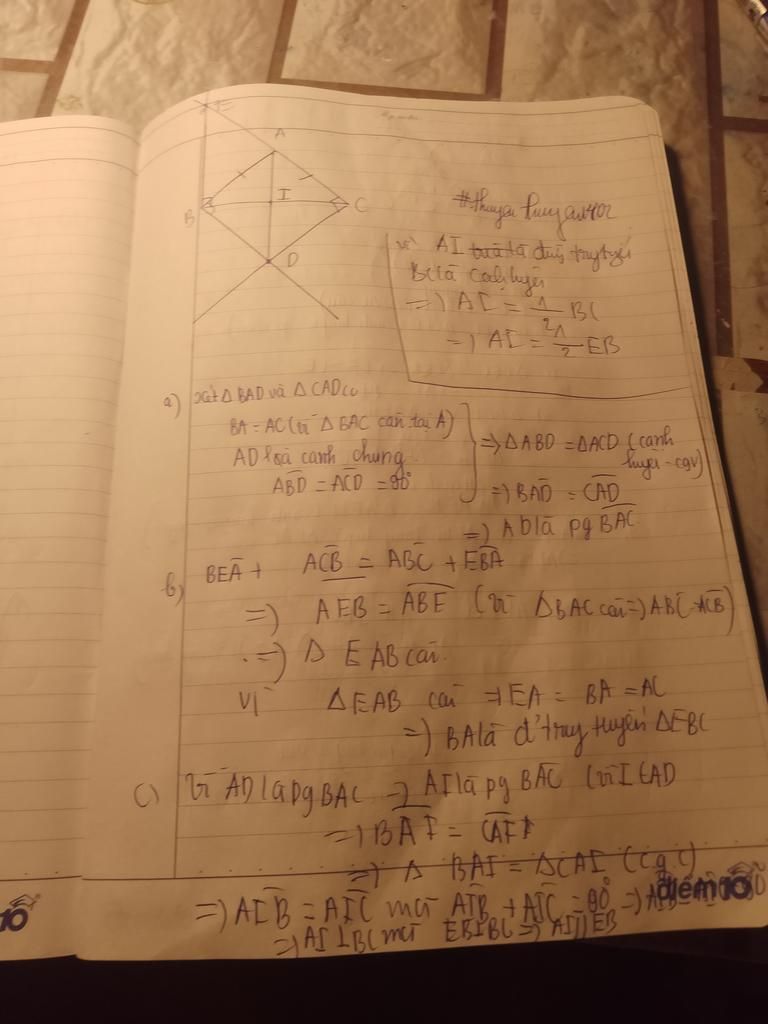 E
A
B
I
C
D
Vì AI là đg trung tuyến
BC là cạnh huyền
=) AI = 1/2 BC
=) AI = 1/2 EB
a) xét Δ BAD và Δ CAD có
BA = AC (vì Δ BAC cân tại A)
AD là cạnh chung
ABD = ACD = 90°
=) Δ ABD = Δ ACD (cạnh
huyền - cgv)
=) BAD = CAD
=) AD là pg BAC
b) BEA + ACB = ABC + EBA
=) AEB = ABE (vì Δ BAC cân =) ABC = ACB)
=) Δ EAB cân
Vì Δ EAB cân =) EA = BA = AC
=) BA là đ' trung tuyến Δ EBC
c) Vì AD là pg BAC =) AI là pg BAC (vì I ∈ AD
=) BAI = CAI
=) Δ BAI = Δ CAI (c.g.c)
=) AIB = AIC mà AIB + AIC = 90° =)
=) AI ⊥ BC mà EB ⊥ BC =) AI // EB
điểm 10
10